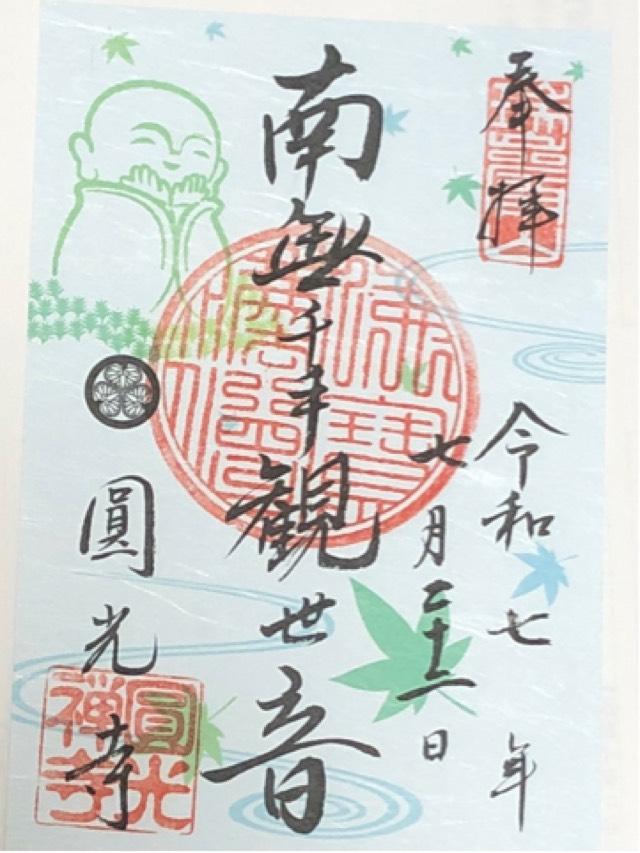 奉拝
令和七年
七月二十二日
南無千手觀世音
圓光寺
圓光
禅寺